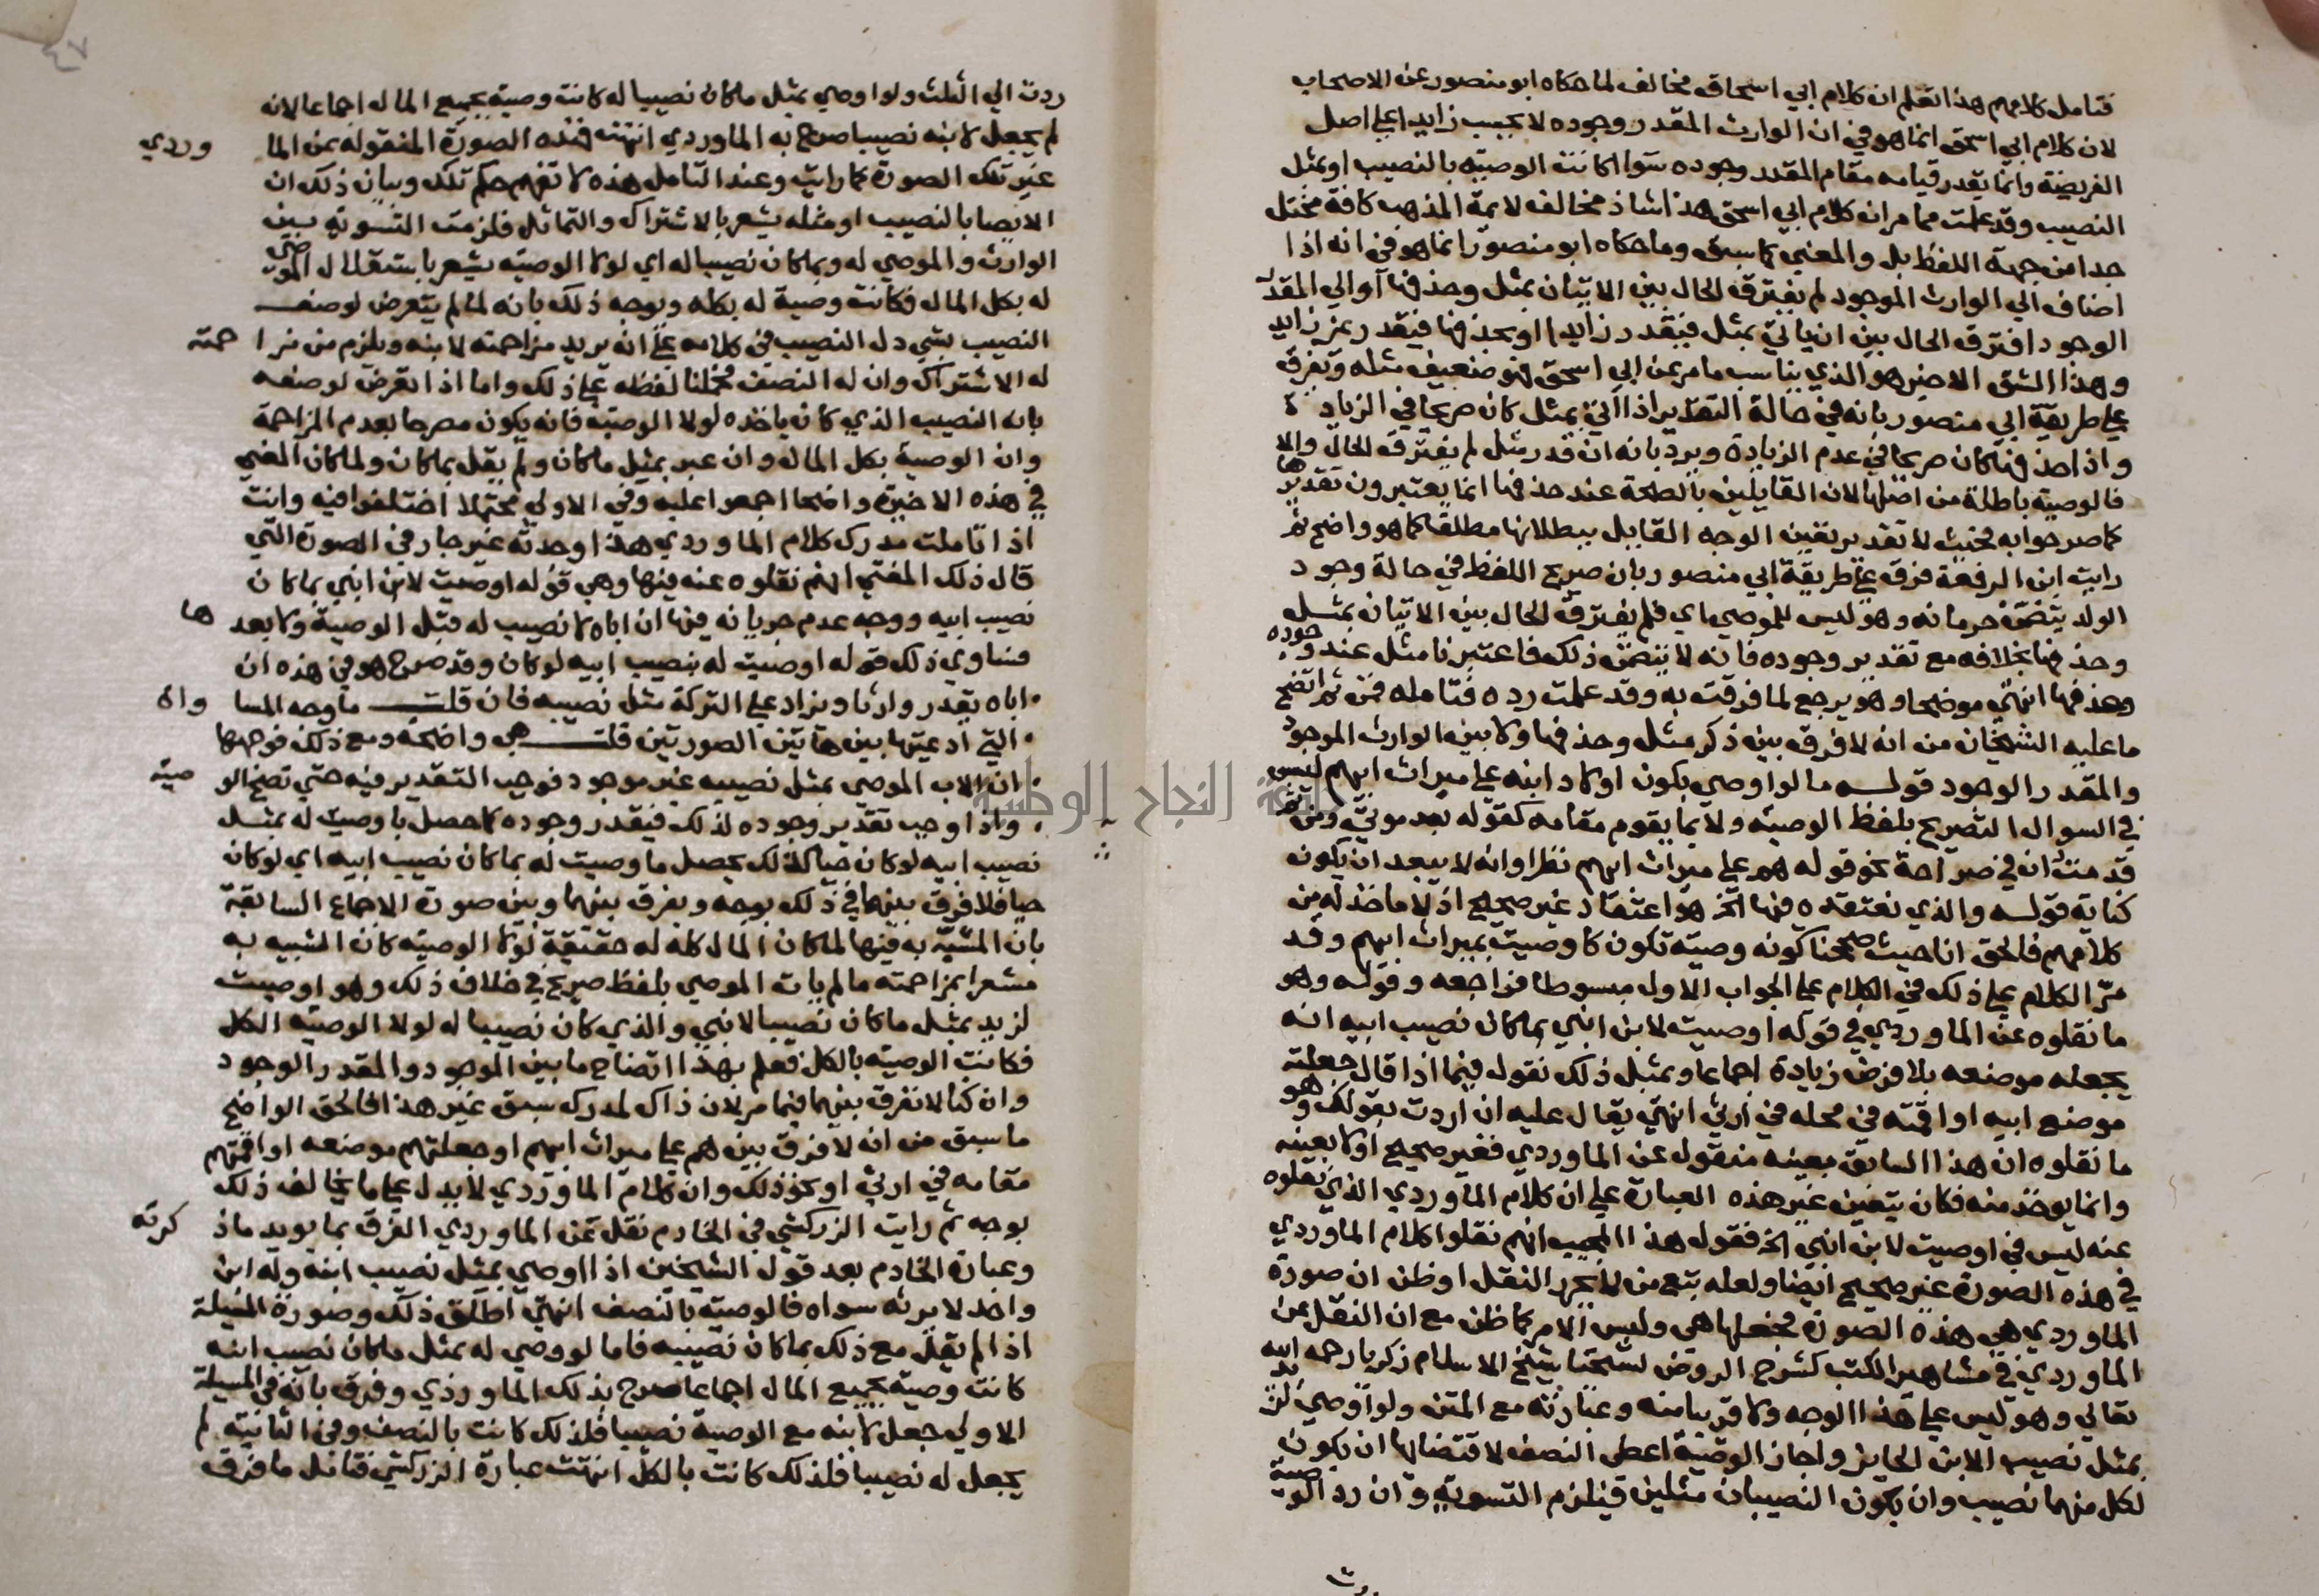 فتامل كلامهم هذا تعلم ان كلام ابي اسحاق مخالف لما حكاه ابو منصور عن الاصحاب
لان كلام ابي اسحق انما هو في ان الوارث المقدر وجوده لا يجب زايدا علي اصل
الفريضة وانما يقدر قيامه مقام المقدر وجوده سوا كانت الوصية بالنصيب او بمثل
النصيب وقد علمت مما مر ان كلام ابي اسحق هذا شاذ مخالف لايمة المذهب كافة مختل
جدا من جهة اللفظ بل والمعني كما سبق وما حكاه ابو منصور انما هو في انه اذا
اضاف الي الوارث الموجود لم يفترق الحال بين الاتيان بمثل وحذفها او الي المقدر
الوجود افترق الحال بين ان ياتي بمثل فيقدر زايدا او بحذفها فيقدر بمن زايد
وهذا الشق الاخير هو الذي يناسب ما مر عن ابي اسحق فهو ضعيف مثله وتفرق
علي طريقة ابي منصور بانه في حالة التقدير اذا اتي بمثل كان صريحا في الزيادة
واذا حذفها كان صريحا في عدم الزيادة ويرد بانه ان قدر مثل لم يفترق الحال والا
فالوصية باطلة من اصلها لان القايلين بالصحة عند حذفها انما يعتبرون تقديرها
كما صرحوا به فحيث لا تقدير تعين الوجه القايل ببطلانها مطلقا كما هو واضح ثم
رايت ابن الرفعة فرق علي طريقة ابي منصور بان صريح اللفظ في حالة وجود
الولد يتضمن حرمانه وهو ليس للموصي اي فلم يفترق الحال بين الاتيان بمثل
وحذفها بخلافه مع تقدير وجوده فانه لا يتضمن ذلك فاعتبرنا مثل عند وجوده
وحذفها انتهي موضحا وهو يرجع لما فرقت به وقد علمت رده فتامله فمن ثم اتضح
ما عليه الشيخان من انه لا فرق بين ذكر مثل وحذفها ولا بين الوارث الموجود
والمقدر الوجود قوله ما لو اوصي بكون اولاد ابنه علي ميراث ابيهم ليس
في السوال التصريح بلفظ الوصية ولا بما يقوم مقامه كقوله بعد موتي ومن ثم
قدمت ان في صراحة نحو قوله هم علي ميراث ابيهم نظرا وانه لا يبعد ان يكون
كناية قوله والذي نعتقده فيها الخ هو اعتقاد غير صحيح اذ لا ماخذ له من
كلامهم فالحق انا حيث صححنا كونه وصية تكون كاوصيت بميراث ابيهم وقد
مر الكلام علي ذلك في الكلام علي الجواب الاول مبسوطا فراجعه وقوله وهو
ما نقلوه عن الماوردي في قوله اوصيت لابن ابني بما كان نصيب ابيه انه
يجعله موضعه بلا فرض زيادة اجماعا وبمثل ذلك نقول فيما اذا قال جعلته
موضع ابيه او اقمته في محله في ارثي انتهي يقال عليه ان اردت بقولك وهو
ما نقلوه ان هذا السابق بعينه منقول عن الماوردي فغير صحيح اولا بعينه
وانما يوخذ منه فكان يتعين غير هذه العبارة علي ان كلام الماوردي الذي نقلوه
عنه ليس في اوصيت لابن ابني الخ فقول هذا المجيب انهم نقلوا كلام الماوردي
في هذه الصورة غير صحيح ايضا ولعله تبع من لم يحرر النقل او ظن ان صورة
الماوردي هي هذه الصورة فجعلها هي وليس الامر كما ظن مع ان النقل عن
الماوردي في مشاهير الكتب كشرح الروض لشيخنا شيخ الاسلام زكريا رحمه الله
تعالي وهو ليس علي هذا الوجه ولا قريبا منه وعبارته مع المتن ولو اوصي لزيد
بمثل نصيب الابن الحايز واجاز الوصية اعطي النصف لاقتضايها ان يكون
لكل منهما نصيب وان يكون النصيبان مثلين فيلزم التسوية وان رد الوصية
ردت
ردت الي الثلث ولو اوصي بمثل ما كان نصيبا له كانت وصية بجميع المال اجماعا لانه
لم يجعل لابنه نصيبا صرح به الماوردي انتهت فهذه الصورة المنقولة عن الماوردي
غير تلك الصورة كما رايت وعند التامل هذه لا تفهم حكم تلك وبيان ذلك ان
الايصا بالنصيب او مثله يشعر بالاشتراك والتماثل فلزمت التسوية بين
الوارث والموصي له وبما كان نصيبا له اي لولا الوصية يشعر باستقلال الموصي
له بكل المال فكانت وصية له بكله ويوجه ذلك بانه لما لم يتعرض لوصف
النصيب بشي دل النصيب في كلامه علي انه يريد مزاحمته لابنه ويلزم من مزاحمته
له الاشتراك وان له النصف فحملنا لفظه علي ذلك واما اذا تعرض لوصفه
بانه النصيب الذي كان ياخذه لولا الوصية فانه يكون مصرحا بعدم المزاحمة
وان الوصية بكل المال وان عبر بمثل ما كان ولم يقل بما كان ولما كان المعني
في هذه الاخيرة واضحا اجمعوا عليه وفي الاولي محتملا اختلفوا فيه وانت
اذا تاملت مدرك كلام الماوردي هذا وجدته غير جار في الصورة التي
قال ذلك المفتي انهم نقلوه عنه فيها وهي قوله اوصيت لابن ابني بما كان
نصيب ابيه ووجه عدم جريانه فيها ان اباه لا نصيب له قبل الوصية ولا بعدها
فساوي ذلك قوله اوصيت له بنصيب ابيه لو كان وقد صرح هو في هذه ان
اباه يقدر وارثا ويزاد علي التركة مثل نصيبه فان قلت ما وجه المساواة
التي ادعيتها بين هاتين الصورتين قلت هي واضحة ومع ذلك فوجهها
ان الاب الموصي بمثل نصيبه غير موجود فوجب التقدير فيه حتي تصح الوصية
واذا وجب تقدير وجوده لذلك فيقدر وجوده كما حصل باوصيت له بمثل
نصيب ابيه لو كان حيا كذلك يحصل باوصيت له بما كان نصيب ابيه اي لو كان
حيا فلا فرق بينهما في ذلك بوجه ويفرق بينهما وبين صورة الاجماع السابقة
بان المشبه به فيها لما كان المال كله له حقيقة لولا الوصية كان التشبيه به
مشعرا بمزاحمته ما لم يات الموصي بلفظ صريح في خلاف ذلك وهو اوصيت
لزيد بمثل ما كان نصيبا لابني والذي كان نصيبا له لولا الوصية الكل
فكانت الوصية بالكل فعلم بهذا اتضاح ما بين الموجود والمقدر الوجود
وان كنا لا نفرق بينهما فيما مر لان ذاك لمدرك سبق غير هذا فالحق الواضح
ما سبق من انه لا فرق بين هم علي ميراث ابيهم او جعلتهم موضعه او اقمتهم
مقامه في ارثي او نحو ذلك وان كلام الماوردي لا يدل علي ما يخالف ذلك
بوجه ثم رايت الزركشي في الخادم نقل عن الماوردي الفرق بما يويد ما ذكرته
وعبارة الخادم بعد قول الشيخين اذا اوصي بمثل نصيب ابنه وله ابن
واحد لا يرثه سواه فالوصية بالنصف انتهي اطلق ذلك وصورة المسيلة
اذا لم يقل مع ذلك بما كان نصيبه فاما لو وصي له بمثل ما كان نصيب ابنه
كانت وصية بجميع المال اجماعا صرح بذلك الماوردي وفرق بانه في المسيلة
الاولي جعل لابنه مع الوصية نصيبا فلذلك كانت بالنصف وفي الثانية لم
يجعل له نصيبا فلذلك كانت بالكل انتهت عبارة الزركشي فتامل ما فرق